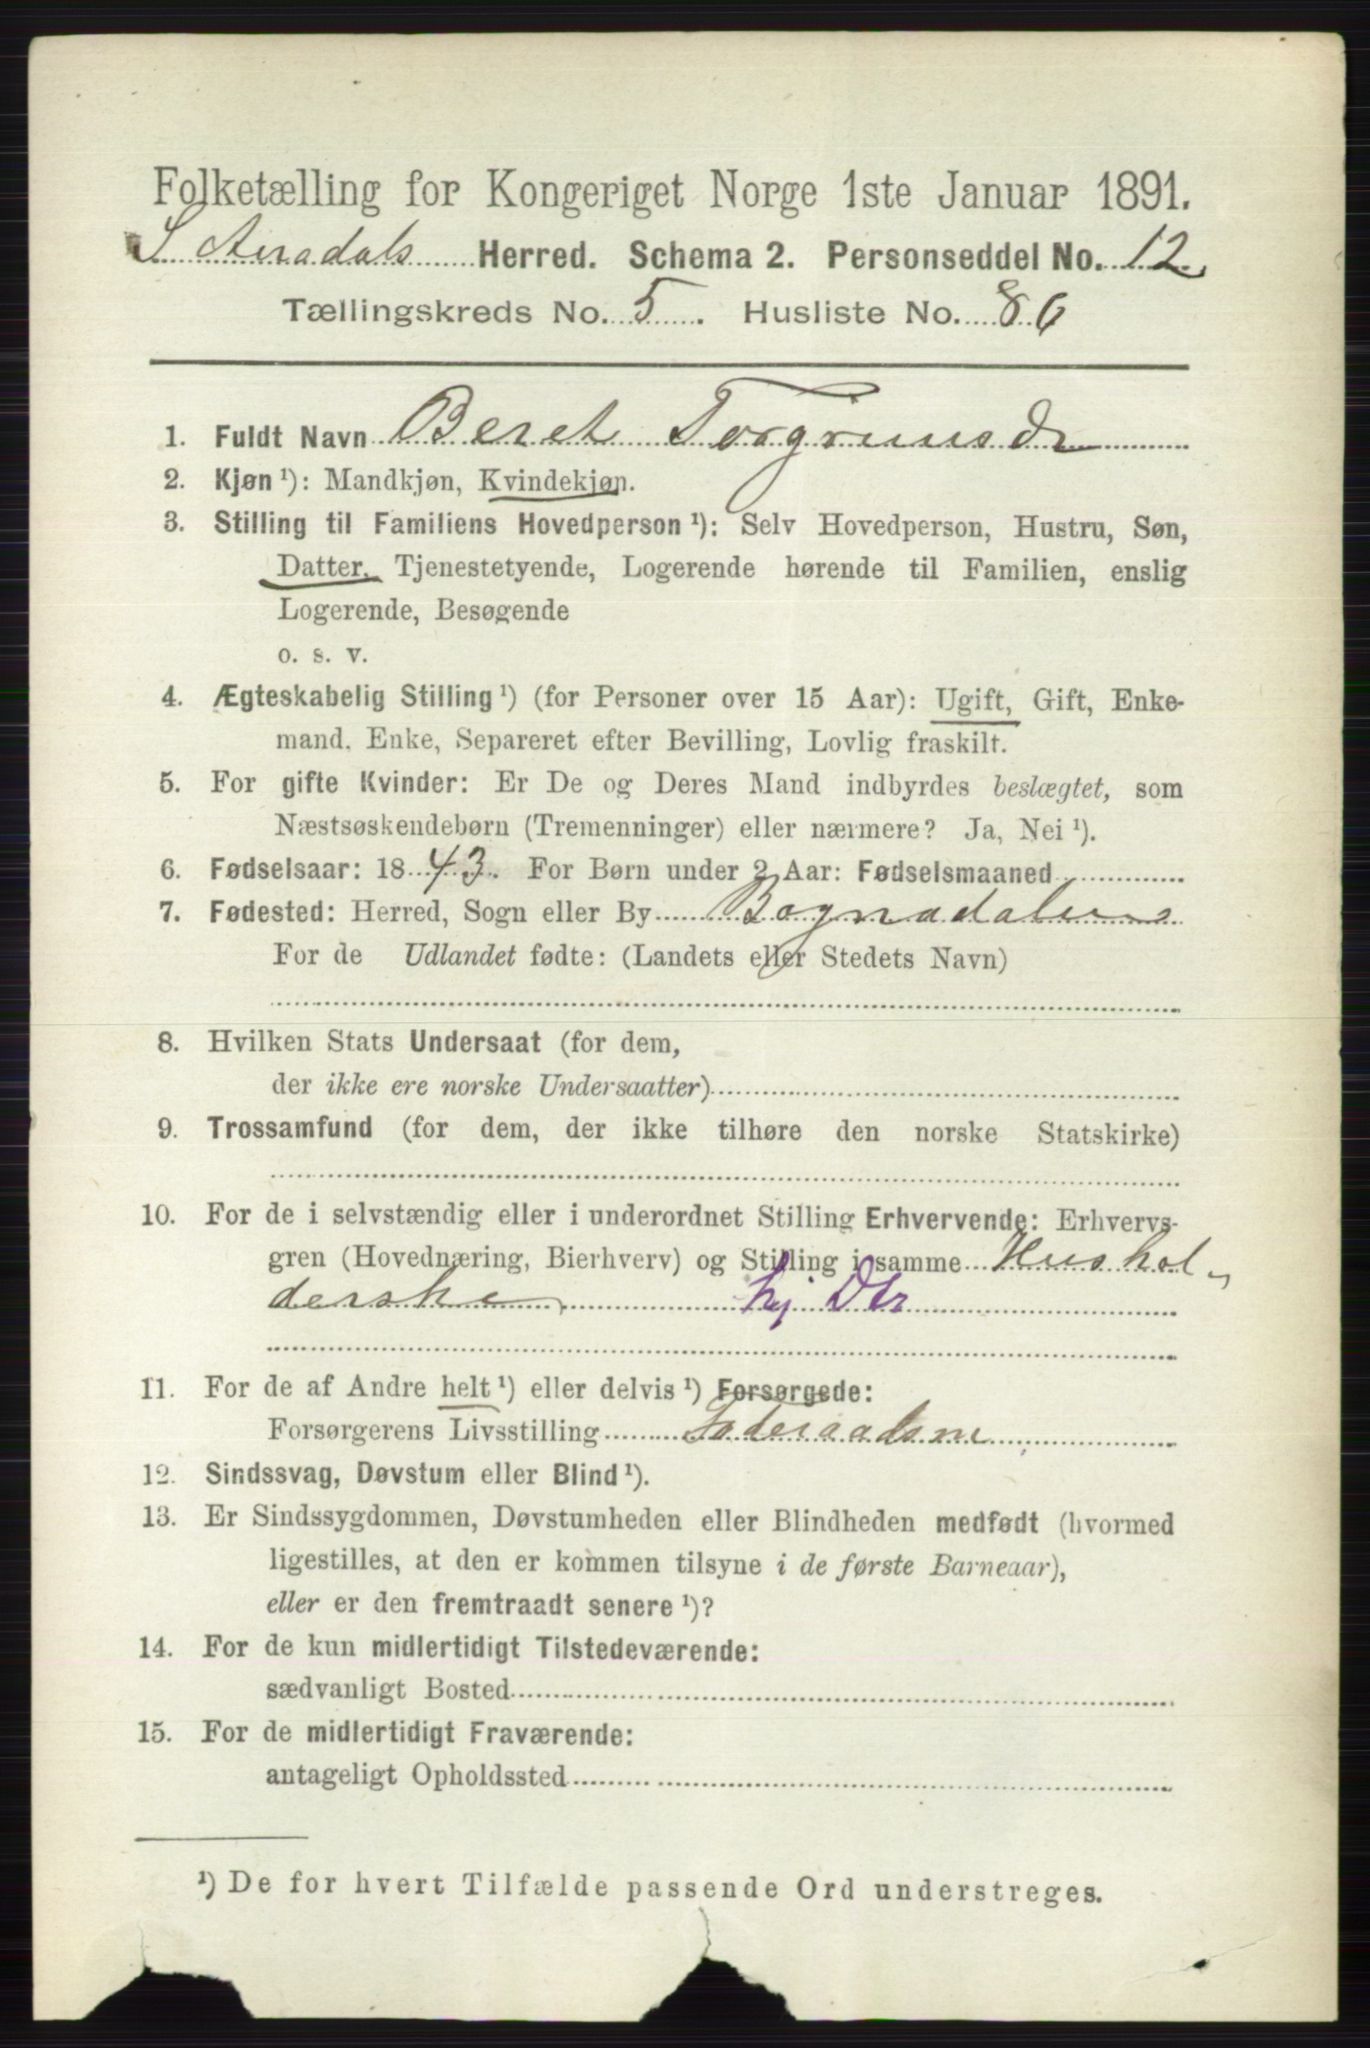 Folketælling for Kongeriget Norge 1ste Januar 1891.
S. Aurdals Herred. Schema 2. Personseddel No. 12.
Tællingskreds No. 5. Husliste No. 86
1. Fuldt Navn Beret Torgrimsdr
2. Kjøn ¹): Mandkjøn, Kvindekjøn.
3. Stilling til Familiens Hovedperson ¹): Selv Hovedperson, Hustru, Søn,
Datter, Tjenestetyende, Logerende hørende til Familien, enslig
Logerende, Besøgende
o. s. v.
4. Ægteskabelig Stilling ¹) (for Personer over 15 Aar): Ugift, Gift, Enke-
mand, Enke, Separeret efter Bevilling, Lovlig fraskilt.
5. For gifte Kvinder: Er De og Deres Mand indbyrdes beslægtet, som
Næstsøskendebørn (Tremenninger) eller nærmere? Ja, Nei ¹).
6. Fødselsaar: 1843. For Børn under 2 Aar: Fødselsmaaned
7. Fødested: Herred, Sogn eller By Bagnadalens
For de Udlandet fødte: (Landets eller Stedets Navn)
8. Hvilken Stats Undersaat (for dem,
der ikke ere norske Undersaatter)
9. Trossamfund (for dem, der ikke tilhøre den norske Statskirke)
10. For de i selvstændig eller i underordnet Stilling Erhvervende: Erhvervs-
gren (Hovednæring, Bierhverv) og Stilling i samme Hushol-
derske, hj Dtr
11. For de af Andre helt ¹) eller delvis ¹) Forsørgede:
Forsørgerens Livsstilling Foderaadsm
12. Sindssvag, Døvstum eller Blind ¹).
13. Er Sindssygdommen, Døvstumheden eller Blindheden medfødt (hvormed
ligestilles, at den er kommen tilsyne i de første Barneaar),
eller er den fremtraadt senere ¹)?
14. For de kun midlertidigt Tilstedeværende:
sædvanligt Bosted
15. For de midlertidigt Fraværende:
antageligt Opholdssted
¹) De for hvert Tilfælde passende Ord understreges.